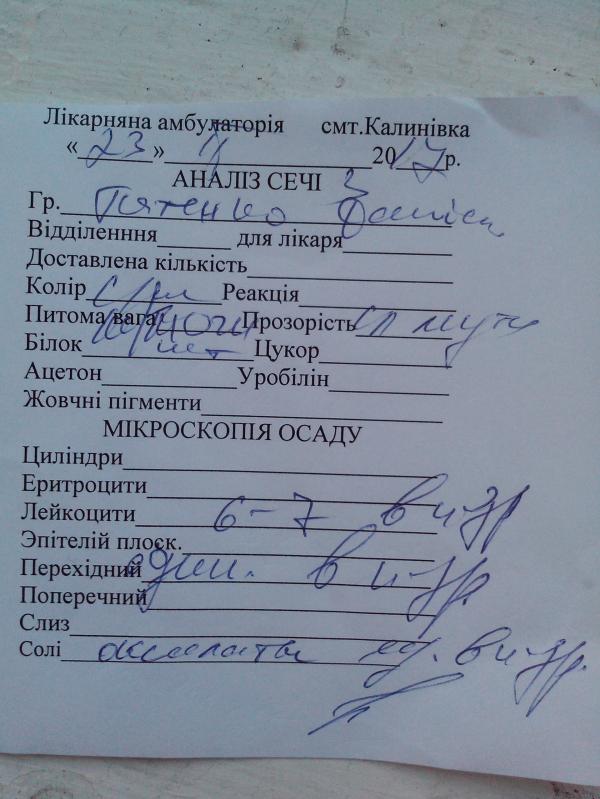 Лікарняна амбулаторія смт.Калинівка
«23» 2017р.
АНАЛІЗ СЕЧІ 3
Гр. Пятенко
Відділенння для лікаря
Доставлена кількість
Колір с/ж Реакція
Питома вага Прозорість сл мутн
Білок нет Цукор
Ацетон Уробілін
Жовчні пігменти
МІКРОСКОПІЯ ОСАДУ
Циліндри
Еритроцити
Лейкоцити 6-7 в п/зр
Эпітелій плоск.
Перехідний един. в п/зр.
Поперечний
Слиз
Солі оксалаты ед. в п/зр.